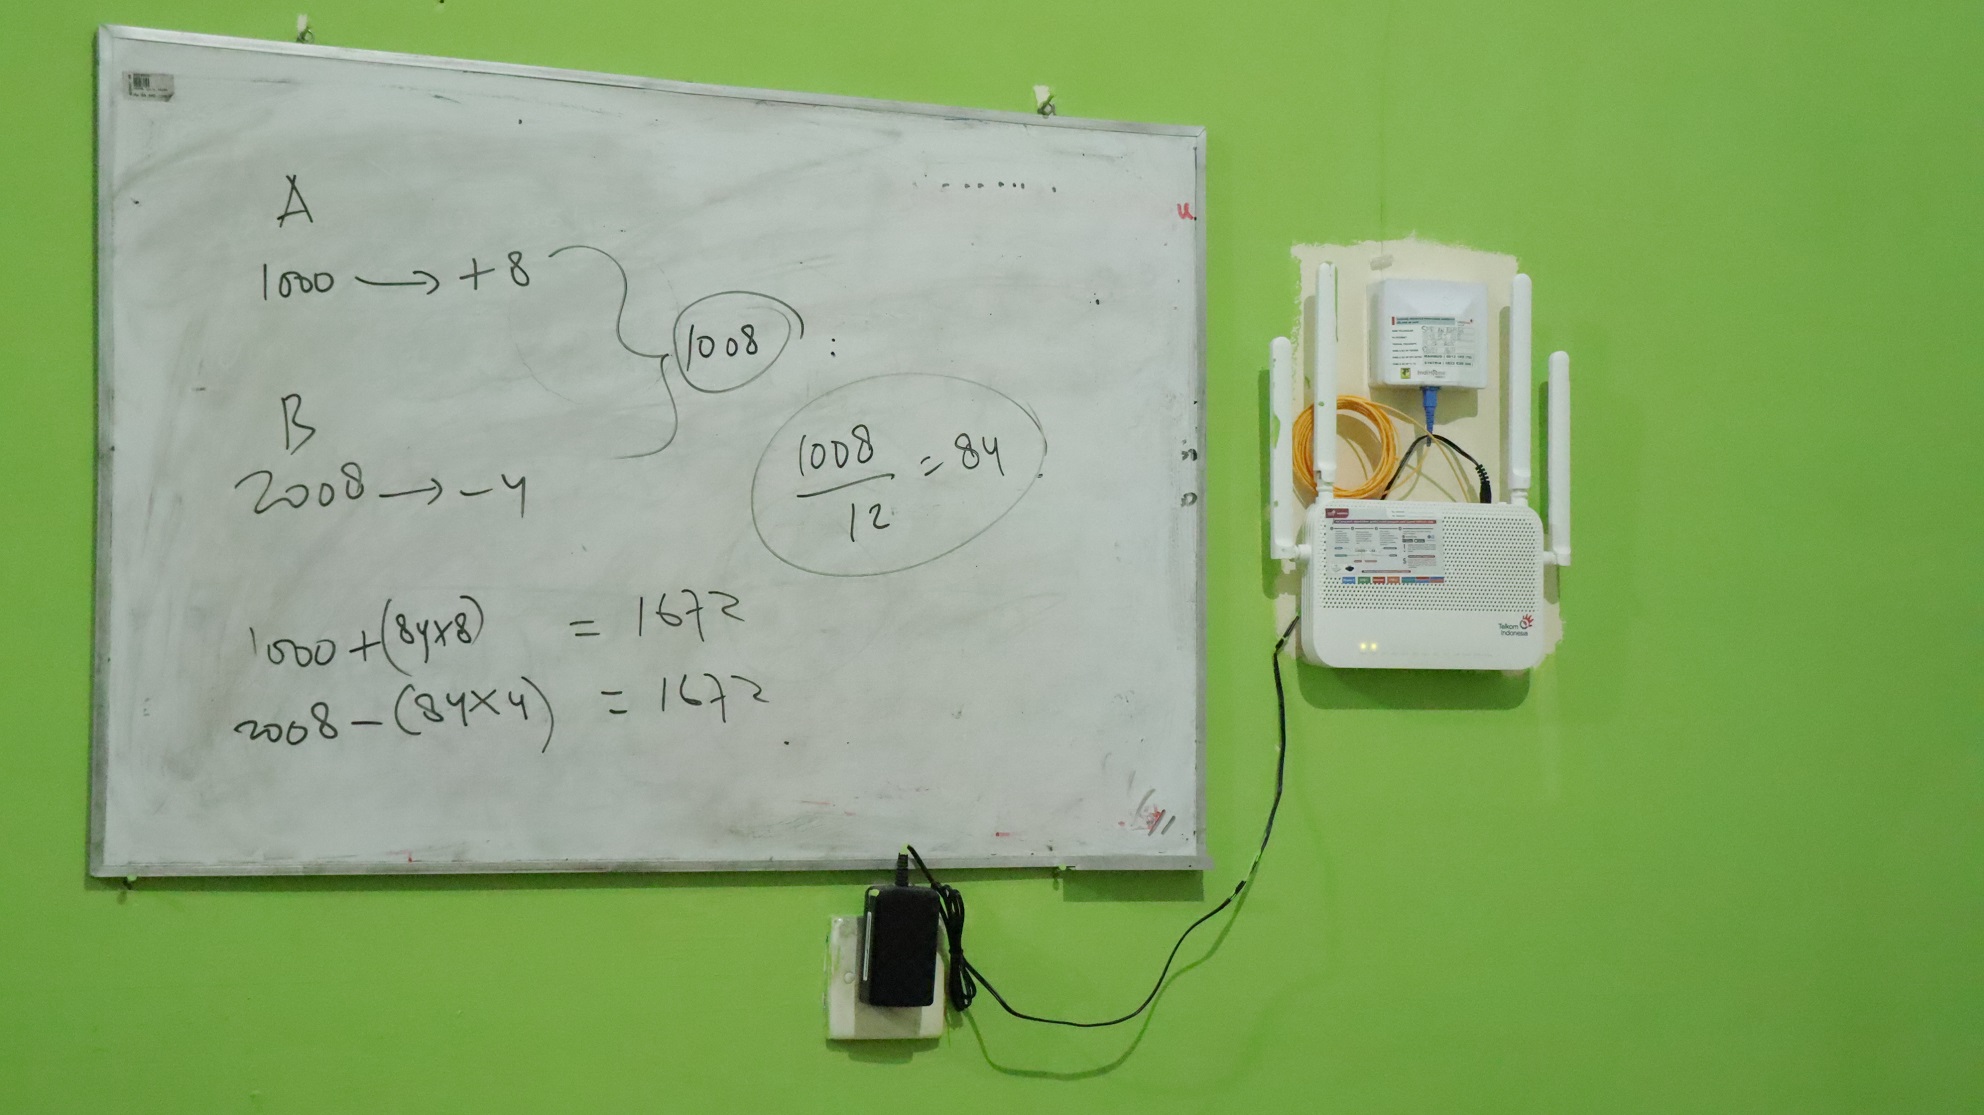 A
1000 → +8
1008 :
B
2008 → -4
1008
12
= 84
1000 + (84×8) = 1672
2008 - (84×4) = 1672
u
Telkom
Indonesia